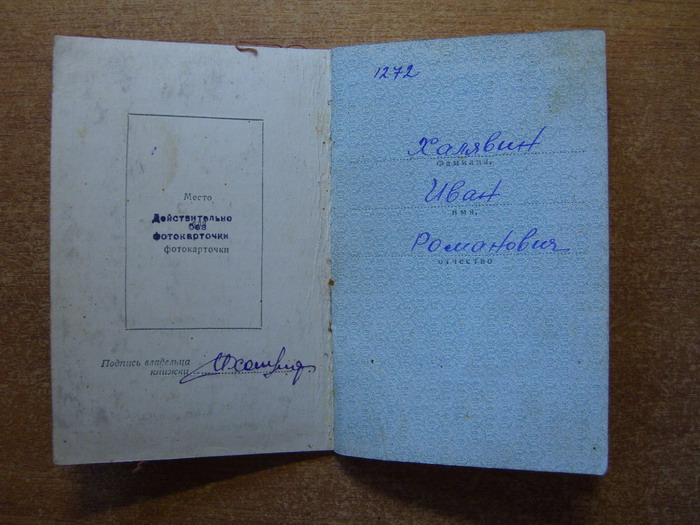 Место
для
Действительно
без
фотокарточки
фотокарточки
Подпись владельца
книжки
1272
Халявин
фамилия,
Иван
имя,
Романович
отчество